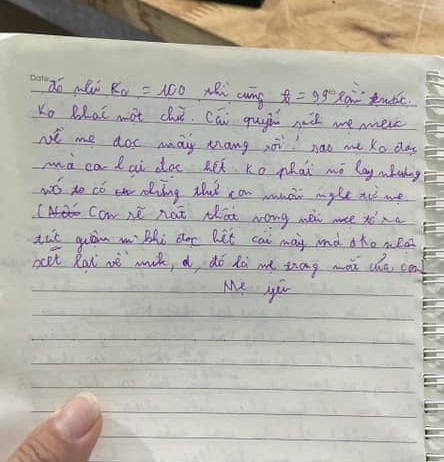 Date
đó nếu Ko = 100 thì cũng 99° lần trước.
Ko khác một chữ. Cái quyển sách mẹ mua
về mẹ đọc mấy trang rồi! sao mẹ ko đọc
mà con lại đọc hết. Ko phải nó hay nhưng
nó có những thứ con muốn nghe từ mẹ
Con sẽ rất thất vọng nếu mẹ tỏ ra
tức giận khi đọc hết cái này mà cho nhận
xét lại về mik, đó là mẹ trong mắt của con
Mẹ yêu